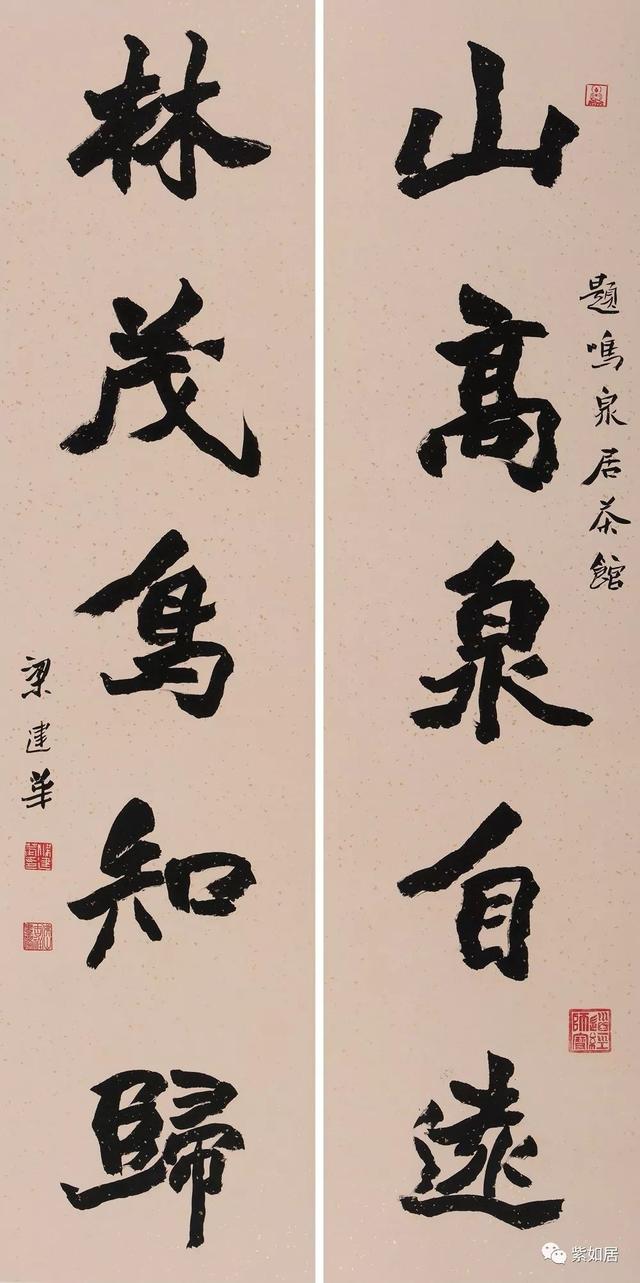 山高泉自遠
題鳴泉居茶館
林茂鳥知歸
梁建華
紫如居